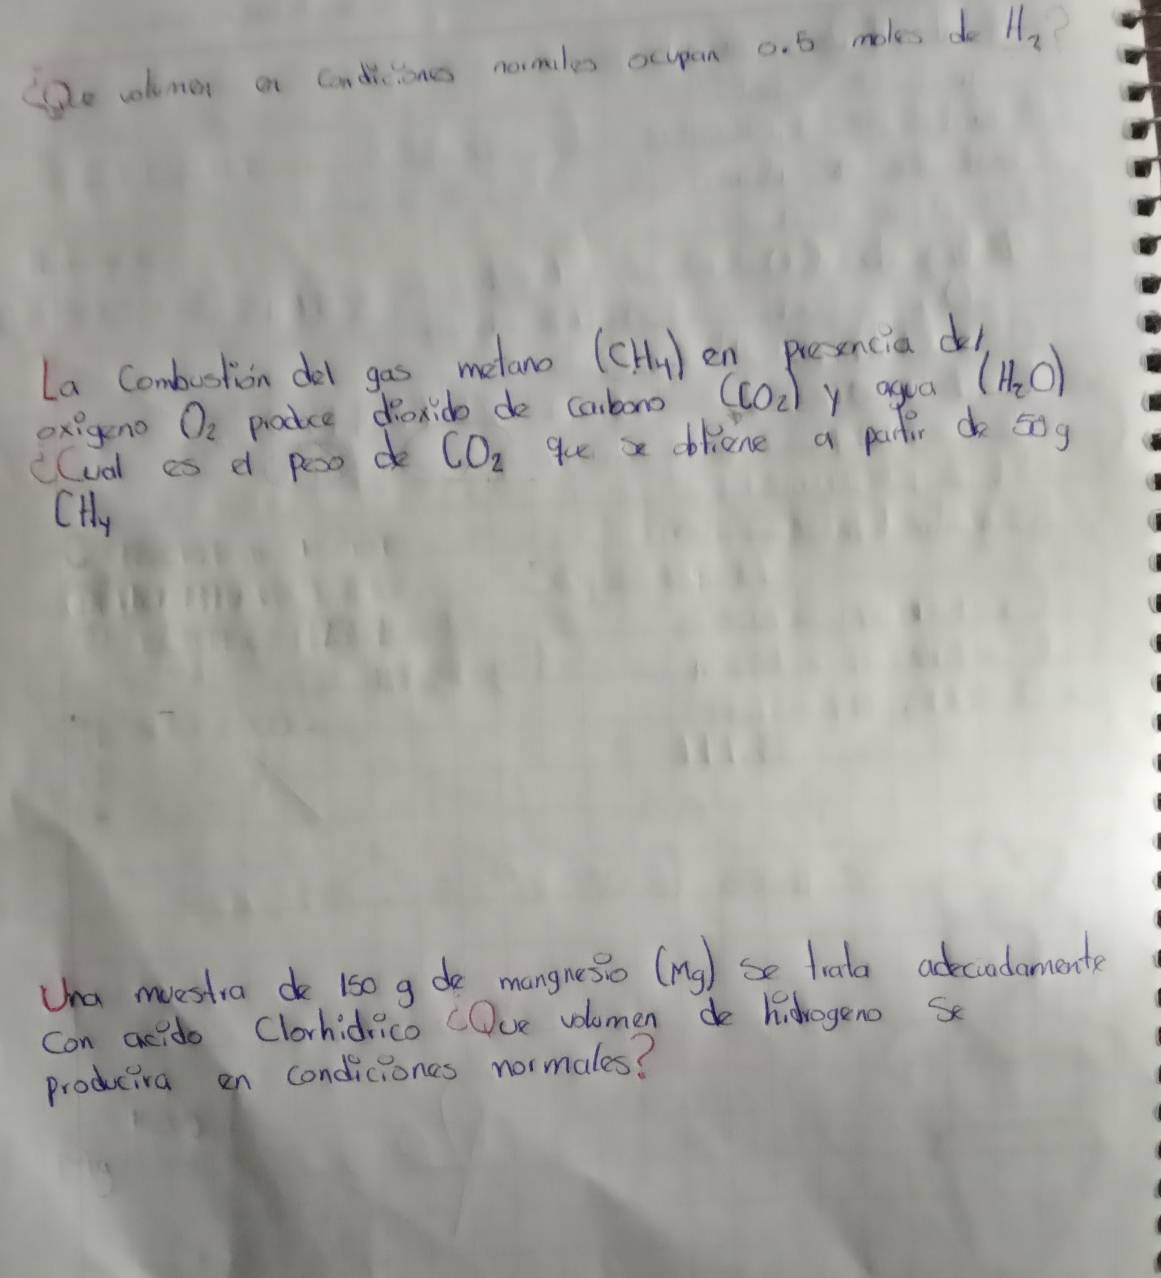 ¿Que volumen en condiciones normales ocupan 0.5 moles de H₂?
La Combustión del gas metano (CH₄) en presencia del
oxigeno O₂ produce dioxido de carbono (CO₂) y agua (H₂O)
¿Cual es el peso de CO₂ que se obtiene a partir de 50g
CH₄
Una muestra de 150 g de mangnesio (Mg) se trata adecuadamente
con acido Clorhidrico ¿Que volumen de hidrogeno se
producira en condiciones normales?